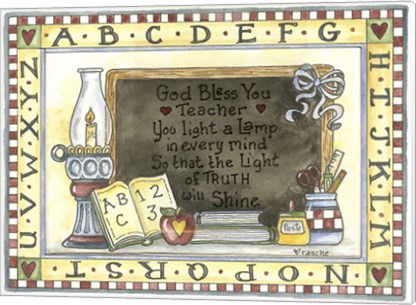 A B C D E F G
H I J K L M
N O P Q R S T
U V W X Y Z
God Bless You
Teacher
You light a Lamp
in every mind
So that the Light
of TRUTH
will Shine
A B
C
1 2
3
Paste
Vrasche